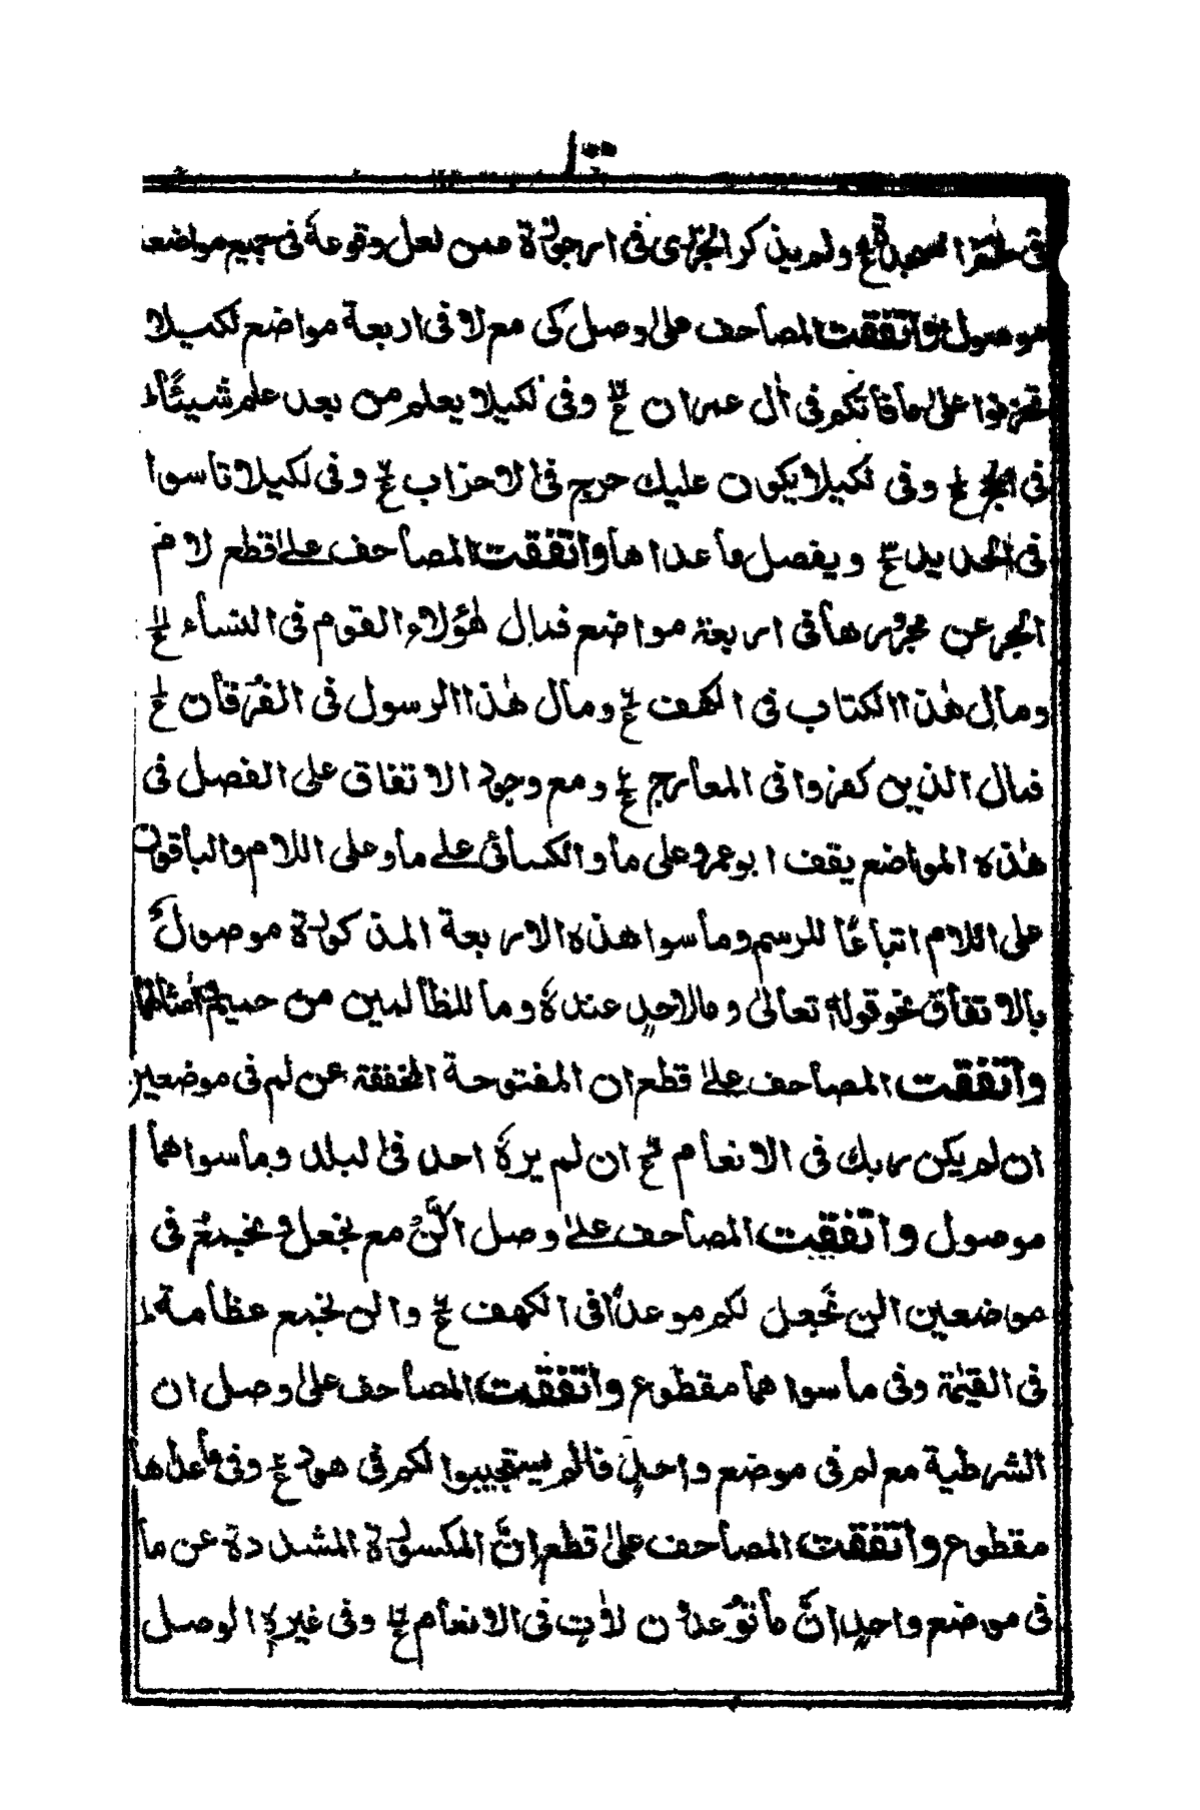 فى حم السجدة ع ولم يذكر الجزرى فى ارجوزة فمن لعل وقوعة فى جميع مواضعه
موصول واتفقت المصاحف على وصل كى مع لا فى اربعة مواضع لكيلا
تحزنوا على مافاتكم فى اٰل عمران ع وفى لكيلا يعلم من بعد علم شيئًاء
فى الحج ع وفى لكيلا يكون عليك حرج فى الاحزاب ع وفى لكيلا تاسوا
فى الحديد ع ويفصل ما عداها واتفقت المصاحف على قطع لام
الجر عن مجرورها فى اربعة مواضع فمال هٰؤلاء القوم فى النساء ع
ومال هٰذا الكتاب فى الكهف ع ومال هٰذا الرسول فى الفرقان ع
فمال الذين كفروا فى المعارج ع ومع وجود الاتفاق على الفصل فى
هٰذه المواضع يقف ابو عمرو على ما والكسائى على ما وعلى اللام والباقون
على اللام اتباعًا للرسم وما سوا هذه الاربعة المذكورة موصولٌ
بالاتفاق نحو قوله تعالىٰ ومالاحدٍ عندهٗ وما للظالمين من حميم امثالهما
واتفقت المصاحف على قطع ان المفتوحة المخففة عن لم فى موضعين
ان لم يكن ربك فى الانعام ع ان لم يرهٗ احد فى البلد وما سواهما
موصول واتفقت المصاحف على وصل الن مع نجعل و نجمع فى
موضعين الن نجعل لكم موعدًا فى الكهف ع والن نجمع عظامهء
فى القيٰمة وفى ما سواهما مقطوع واتفقت المصاحف على وصل ان
الشرطية مع لم فى موضع واحدٍ فالم يستجيبوا لكم فى هود ع وفى ماعداها
مقطوع واتفقت المصاحف على قطع انّ المكسورة المشددة عن ما
فى موضع واحدٍ انّ ما توعدون لاٰت فى الانعام ع وفى غيرهٖ الوصل